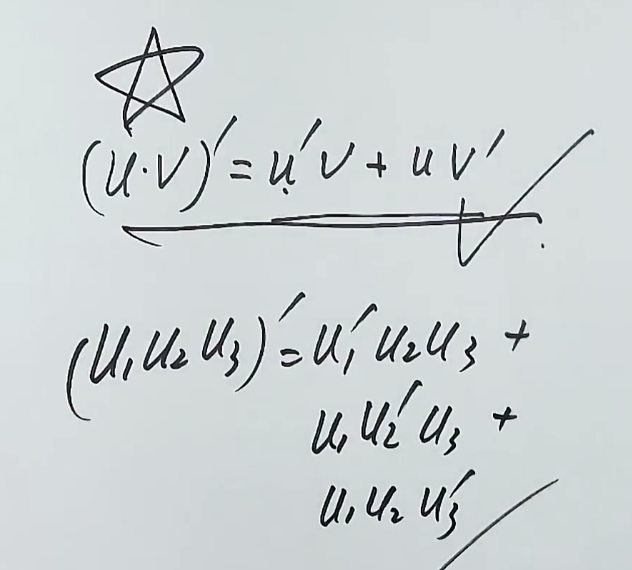 (u·v)′ = u′v + uv′
(u₁u₂u₃)′ = u₁′u₂u₃ +
u₁u₂′u₃ +
u₁u₂u₃′